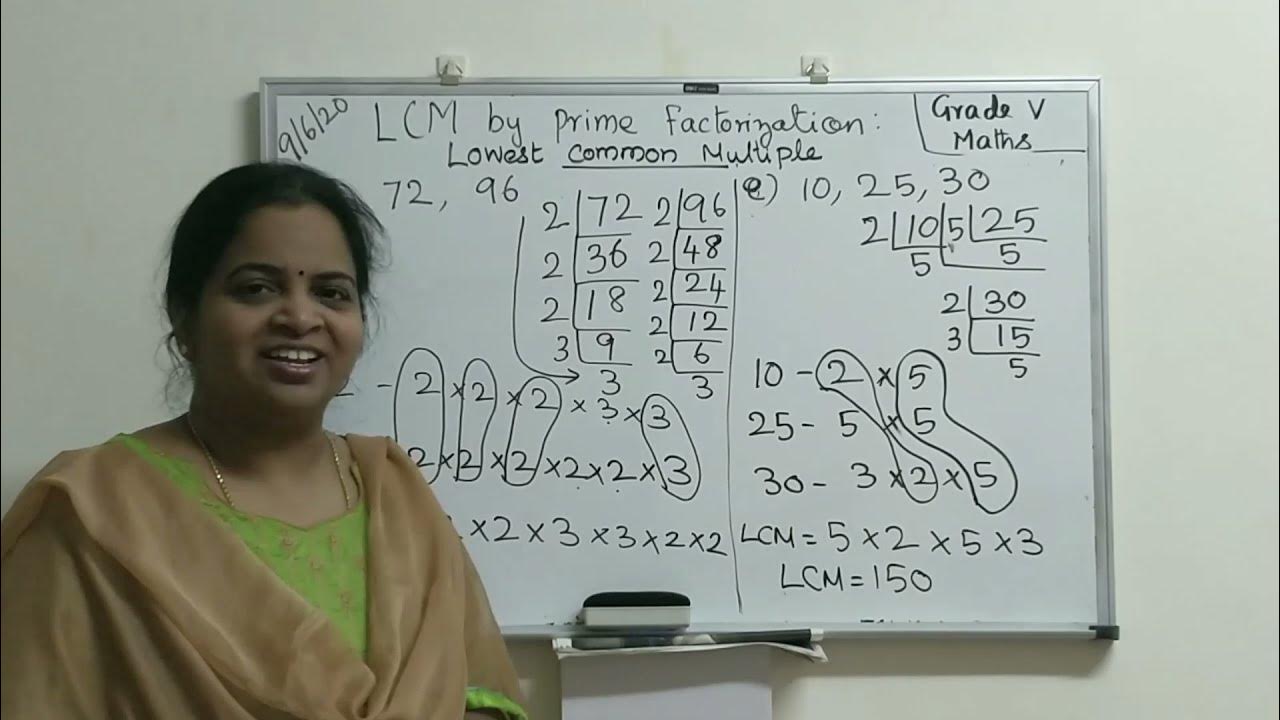 9/6/20
LCM by prime factorization:
Lowest Common Multiple
Grade V
Maths
72, 96
2 72 2 96
2 36 2 48
2 18 2 24
3 9 2 12
3 2 6
3
- 2 × 2 × 2 × 3 × 3
2 × 2 × 2 × 2 × 2 × 3
× 2 × 3 × 3 × 2 × 2
e) 10, 25, 30
2 10 5 25
5 5
2 30
3 15
5
10 - 2 × 5
25 - 5 × 5
30 - 3 × 2 × 5
LCM = 5 × 2 × 5 × 3
LCM = 150